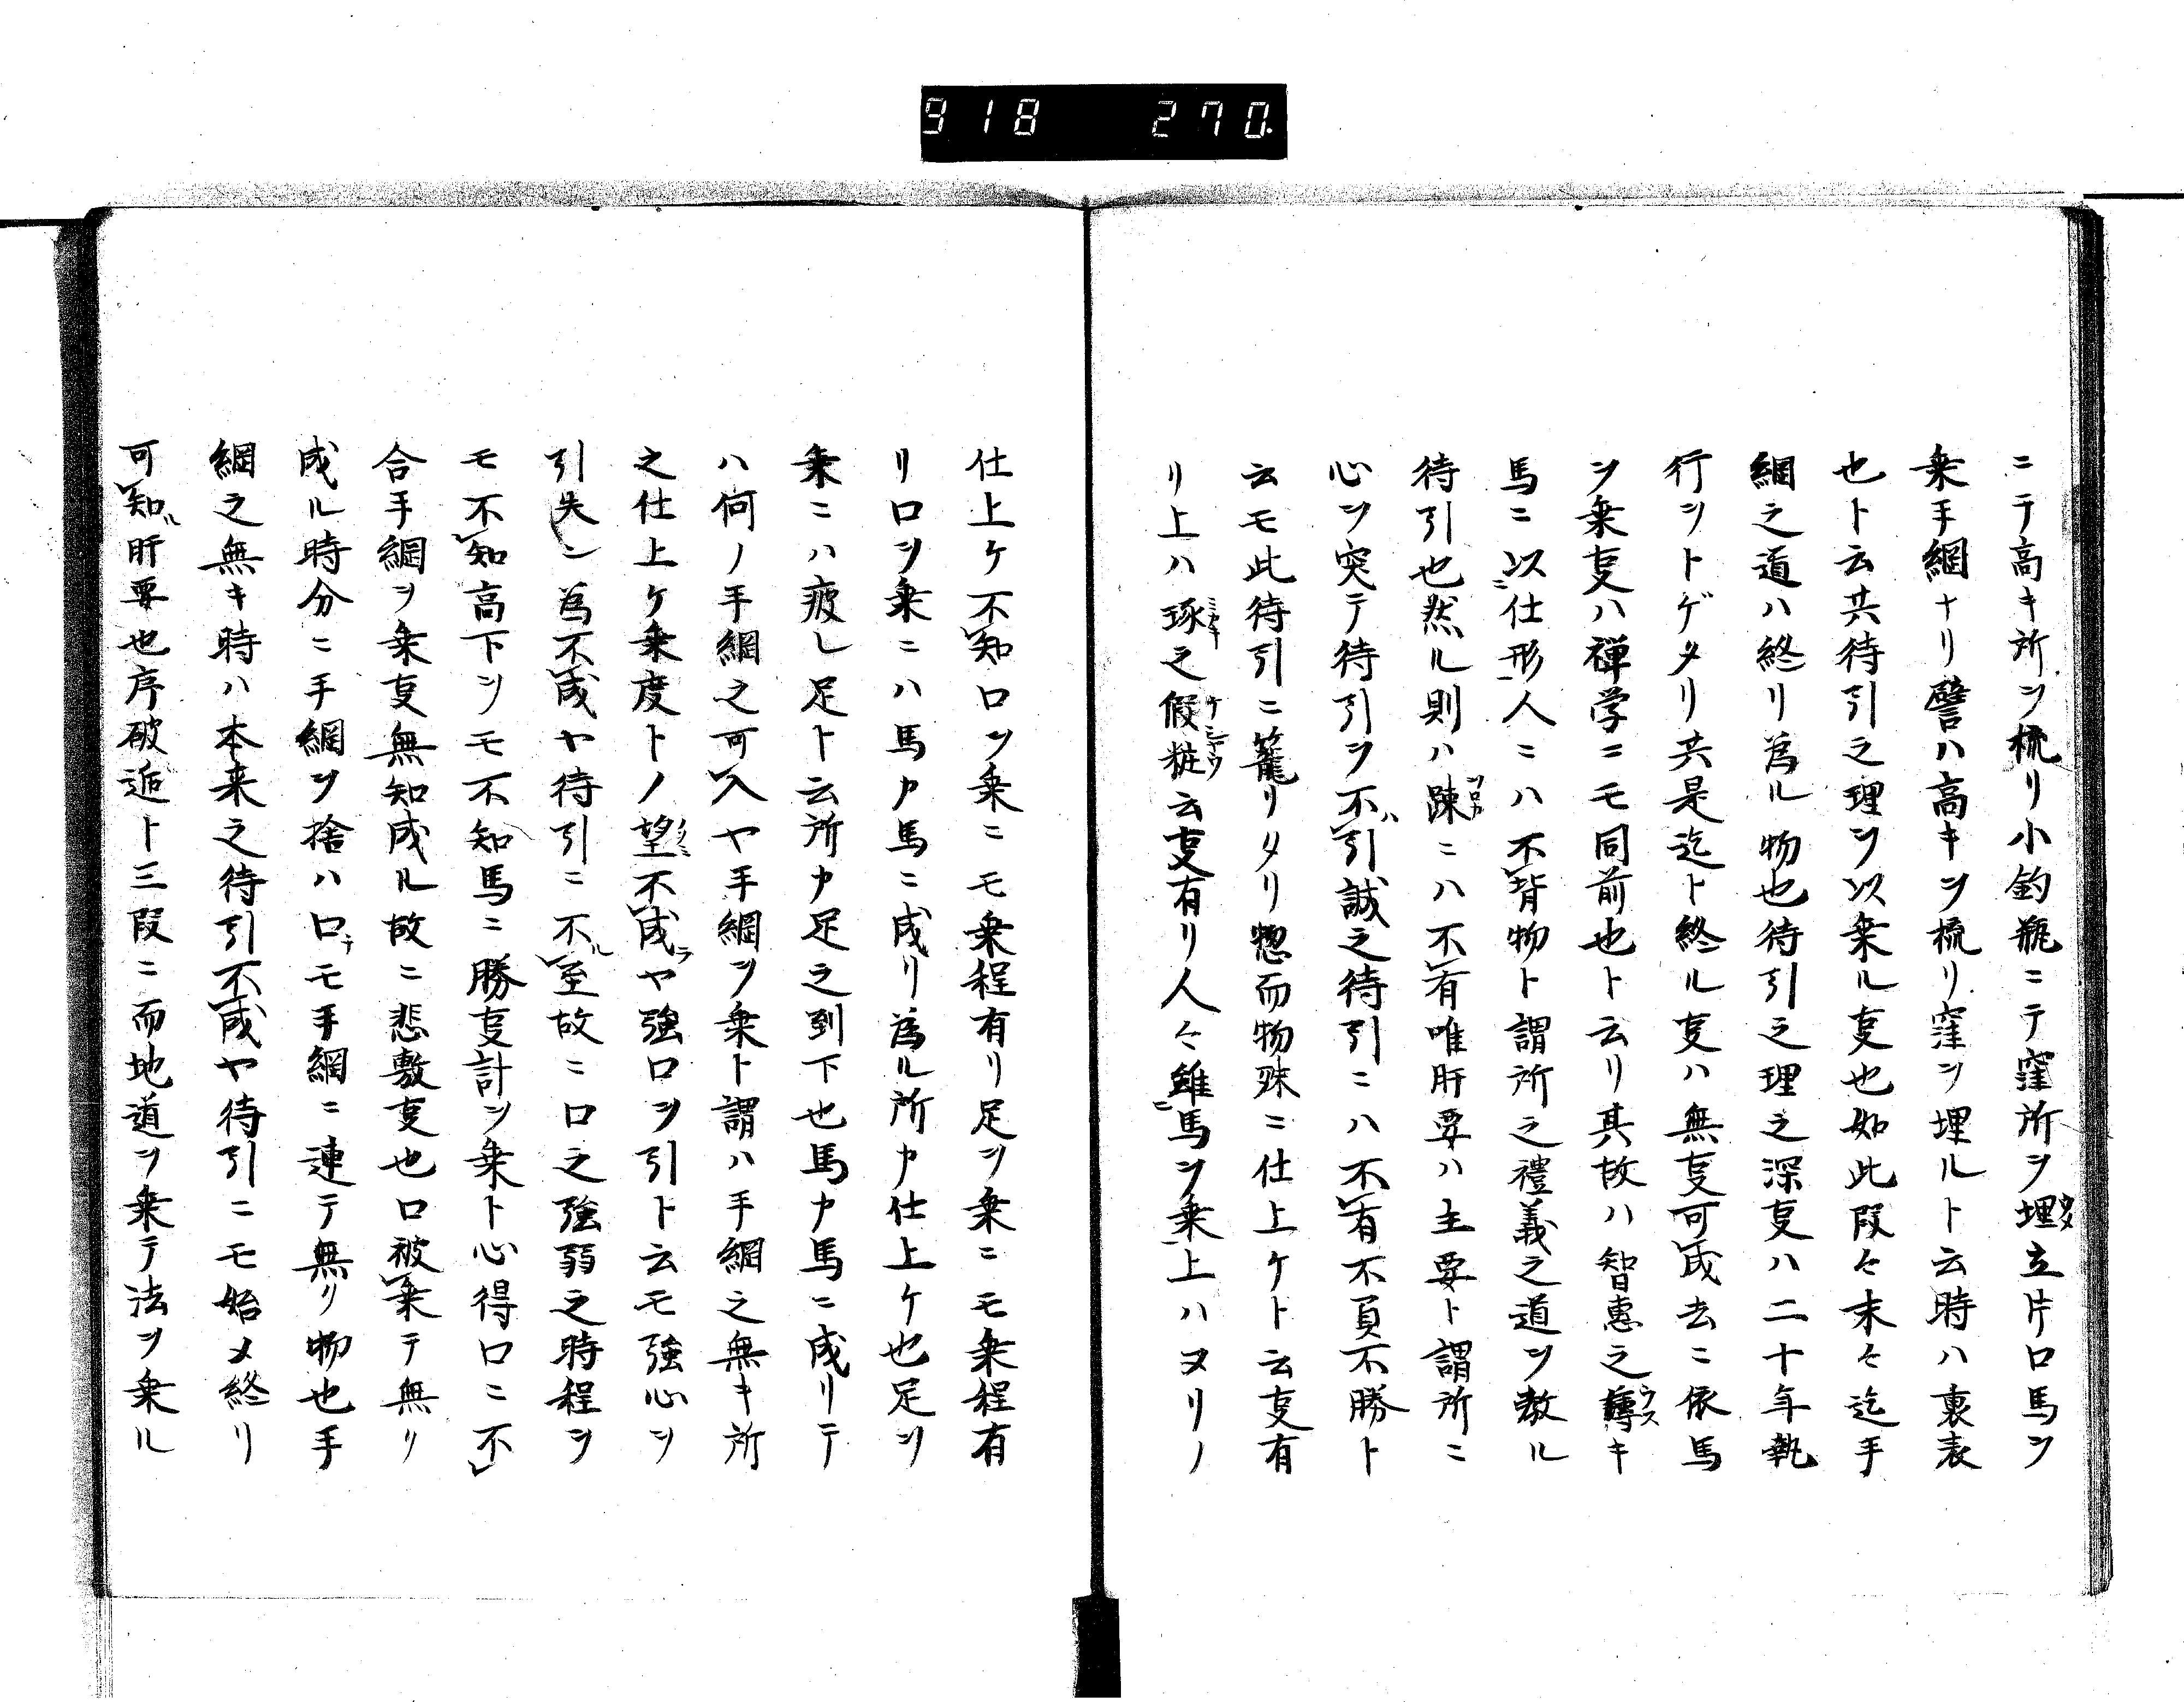 918 270.
ニテ高キ所ヲ梳リ小釣瓶ニテ窪所ヲ埋立片口馬ヲ
乗手綱ナリ譬ハ高キヲ梳リ窪ヲ埋ルト云時ハ裏表
也ト云共待引之理ヲ以乗ル叓也如此段々末々迄手
綱之道ハ終リ為ル物也待引之理之深叓ハ二十年執
行ヲトゲタリ共是迄ト終ル叓ハ無叓可成去ニ依馬
ヲ乗叓ハ禅学ニモ同前也ト云リ其故ハ智恵之薄キ
馬ニ以仕形人ニハ不背物ト謂所之禮義之道ヲ教ル
待引也然ル則ハ踈ニハ不有唯肝要ハ主要ト謂所ニ
心ヲ突テ待引ヲ不引誠之待引ニハ不有不負不勝ト
云モ此待引ニ籠リタリ惣而物殊ニ仕上ケト云叓有
リ上ハ琢之假粧云叓有リ人々雖馬ヲ乗上ハヌリノ
仕上ケ不知口ヲ乗ニモ乗程有リ足ヲ乗ニモ乗程有
リ口ヲ乗ニハ馬カ馬ニ成リ為ル所カ仕上ケ也足ヲ
乗ニハ疲レ足ト云所カ足之到下也馬カ馬ニ成リテ
ハ何ノ手綱之可入ヤ手綱ヲ乗ト謂ハ手綱之無キ所
之仕上ケ乗度トノ望不成ヤ強口ヲ引ト云モ強心ヲ
引失ン為不成ヤ待引ニ不至故ニ口之強弱之時程ヲ
モ不知高下ヲモ不知馬ニ勝叓計ヲ乗ト心得口ニ不
合手綱ヲ乗叓無知成ル故ニ悲敷叓也口被乗テ無リ
成ル時分ニ手綱ヲ捨ハ口モ手綱ニ連テ無リ物也手
綱之無キ時ハ本来之待引不成ヤ待引ニモ始メ終リ
可知肝要也序破逅ト三段ニ而地道ヲ乗テ法ヲ乗ル